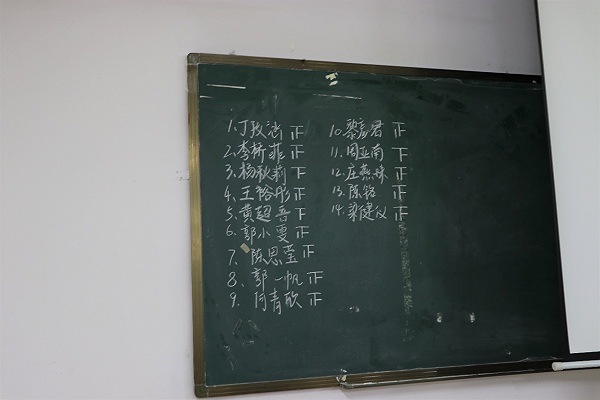 1. 丁孜涵 正
2. 李桥菲 正
3. 杨秋莉 下
4. 王裕彤 正
5. 黄超吾 下
6. 郭小雯 正
7. 陈思莹 正
8. 郭一帆 正
9. 何青欣 正
10. 黎彦君 正
11. 周亚南 下
12. 庄燕妹 正
13. 陈铭 正
14. 梁健仪 正